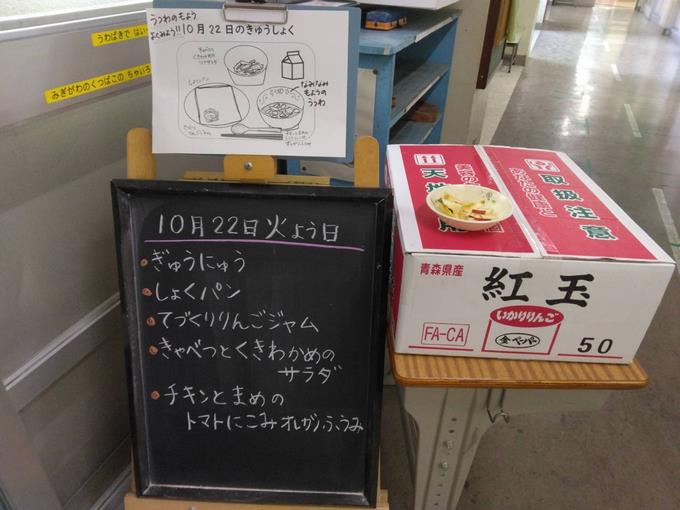 うわばきで はい
みぎがわのくつばこの ちゃいろ
うつわのもよう
よくみよう!!
10月22日のきゅうしょく
しょくパン
なみなみ
もようの
うつわ
10月22日火よう日
ぎゅうにゅう
しょくパン
てづくりりんごジャム
きゃべつとくきわかめの
サラダ
チキンとまめの
トマトにこみ オレガノふうみ
天地
取扱注意
青森県産
紅玉
いかりりんご
FA-CA
50